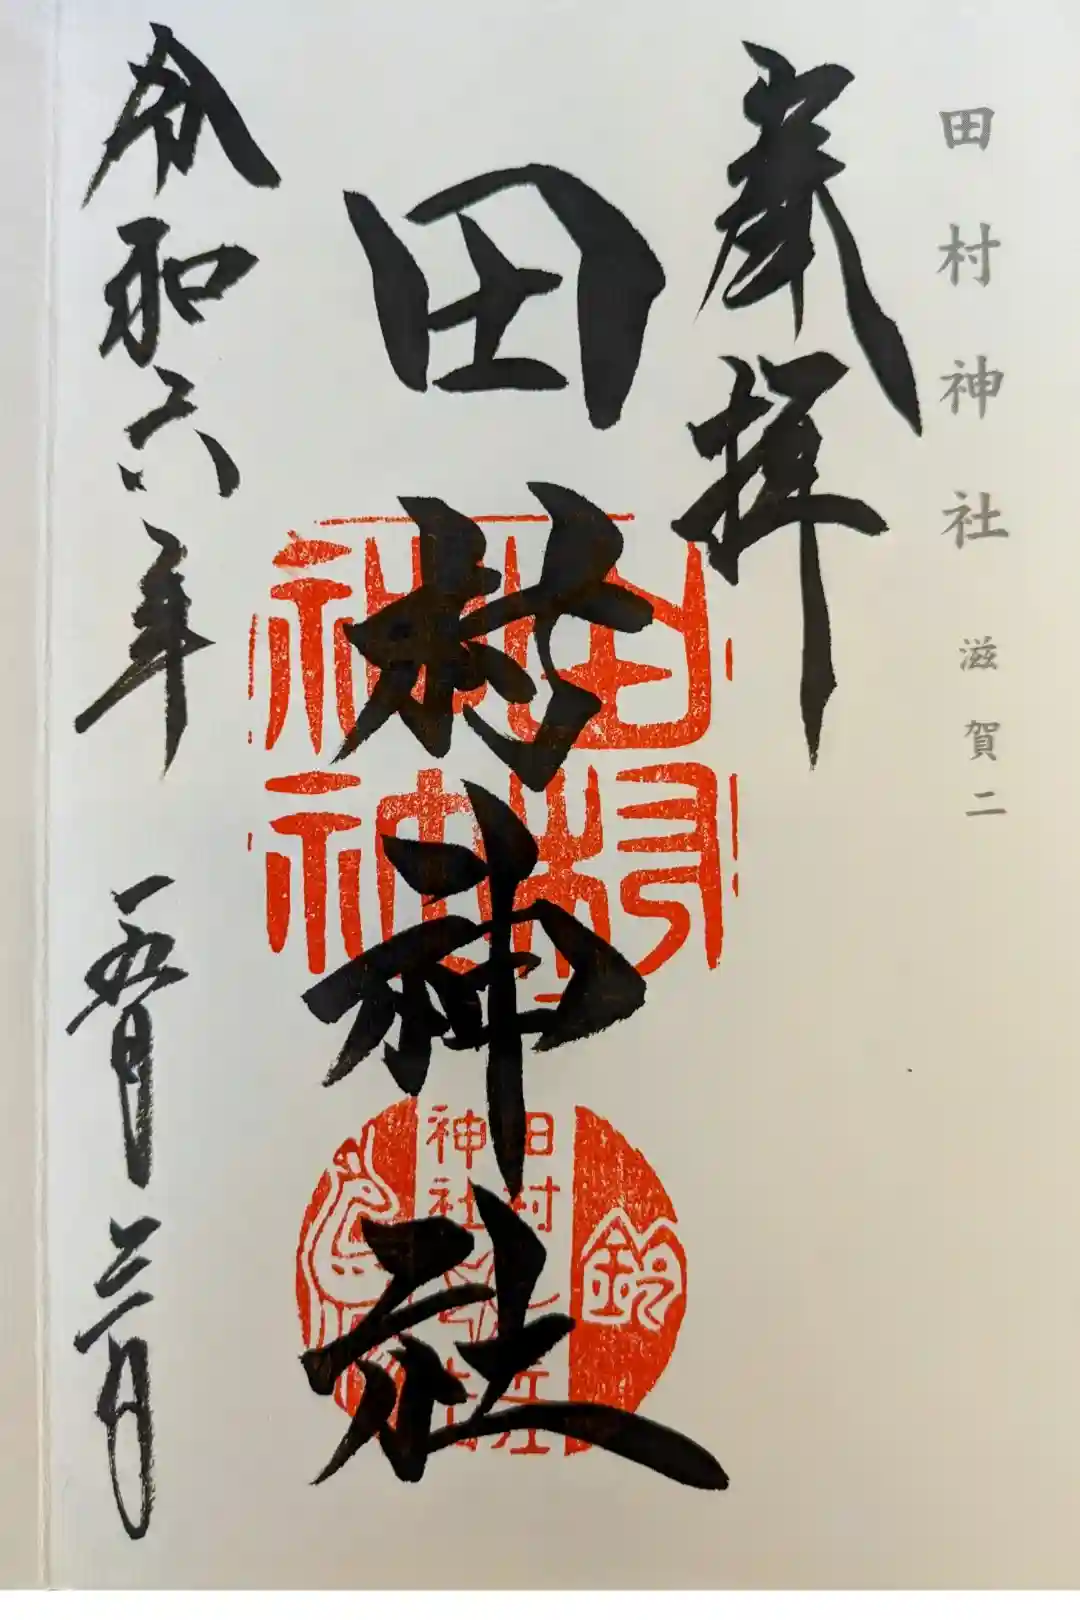 田村神社 滋賀二
奉拝
田村神社
田村
神社
田村
神社
令和六年 五月三日